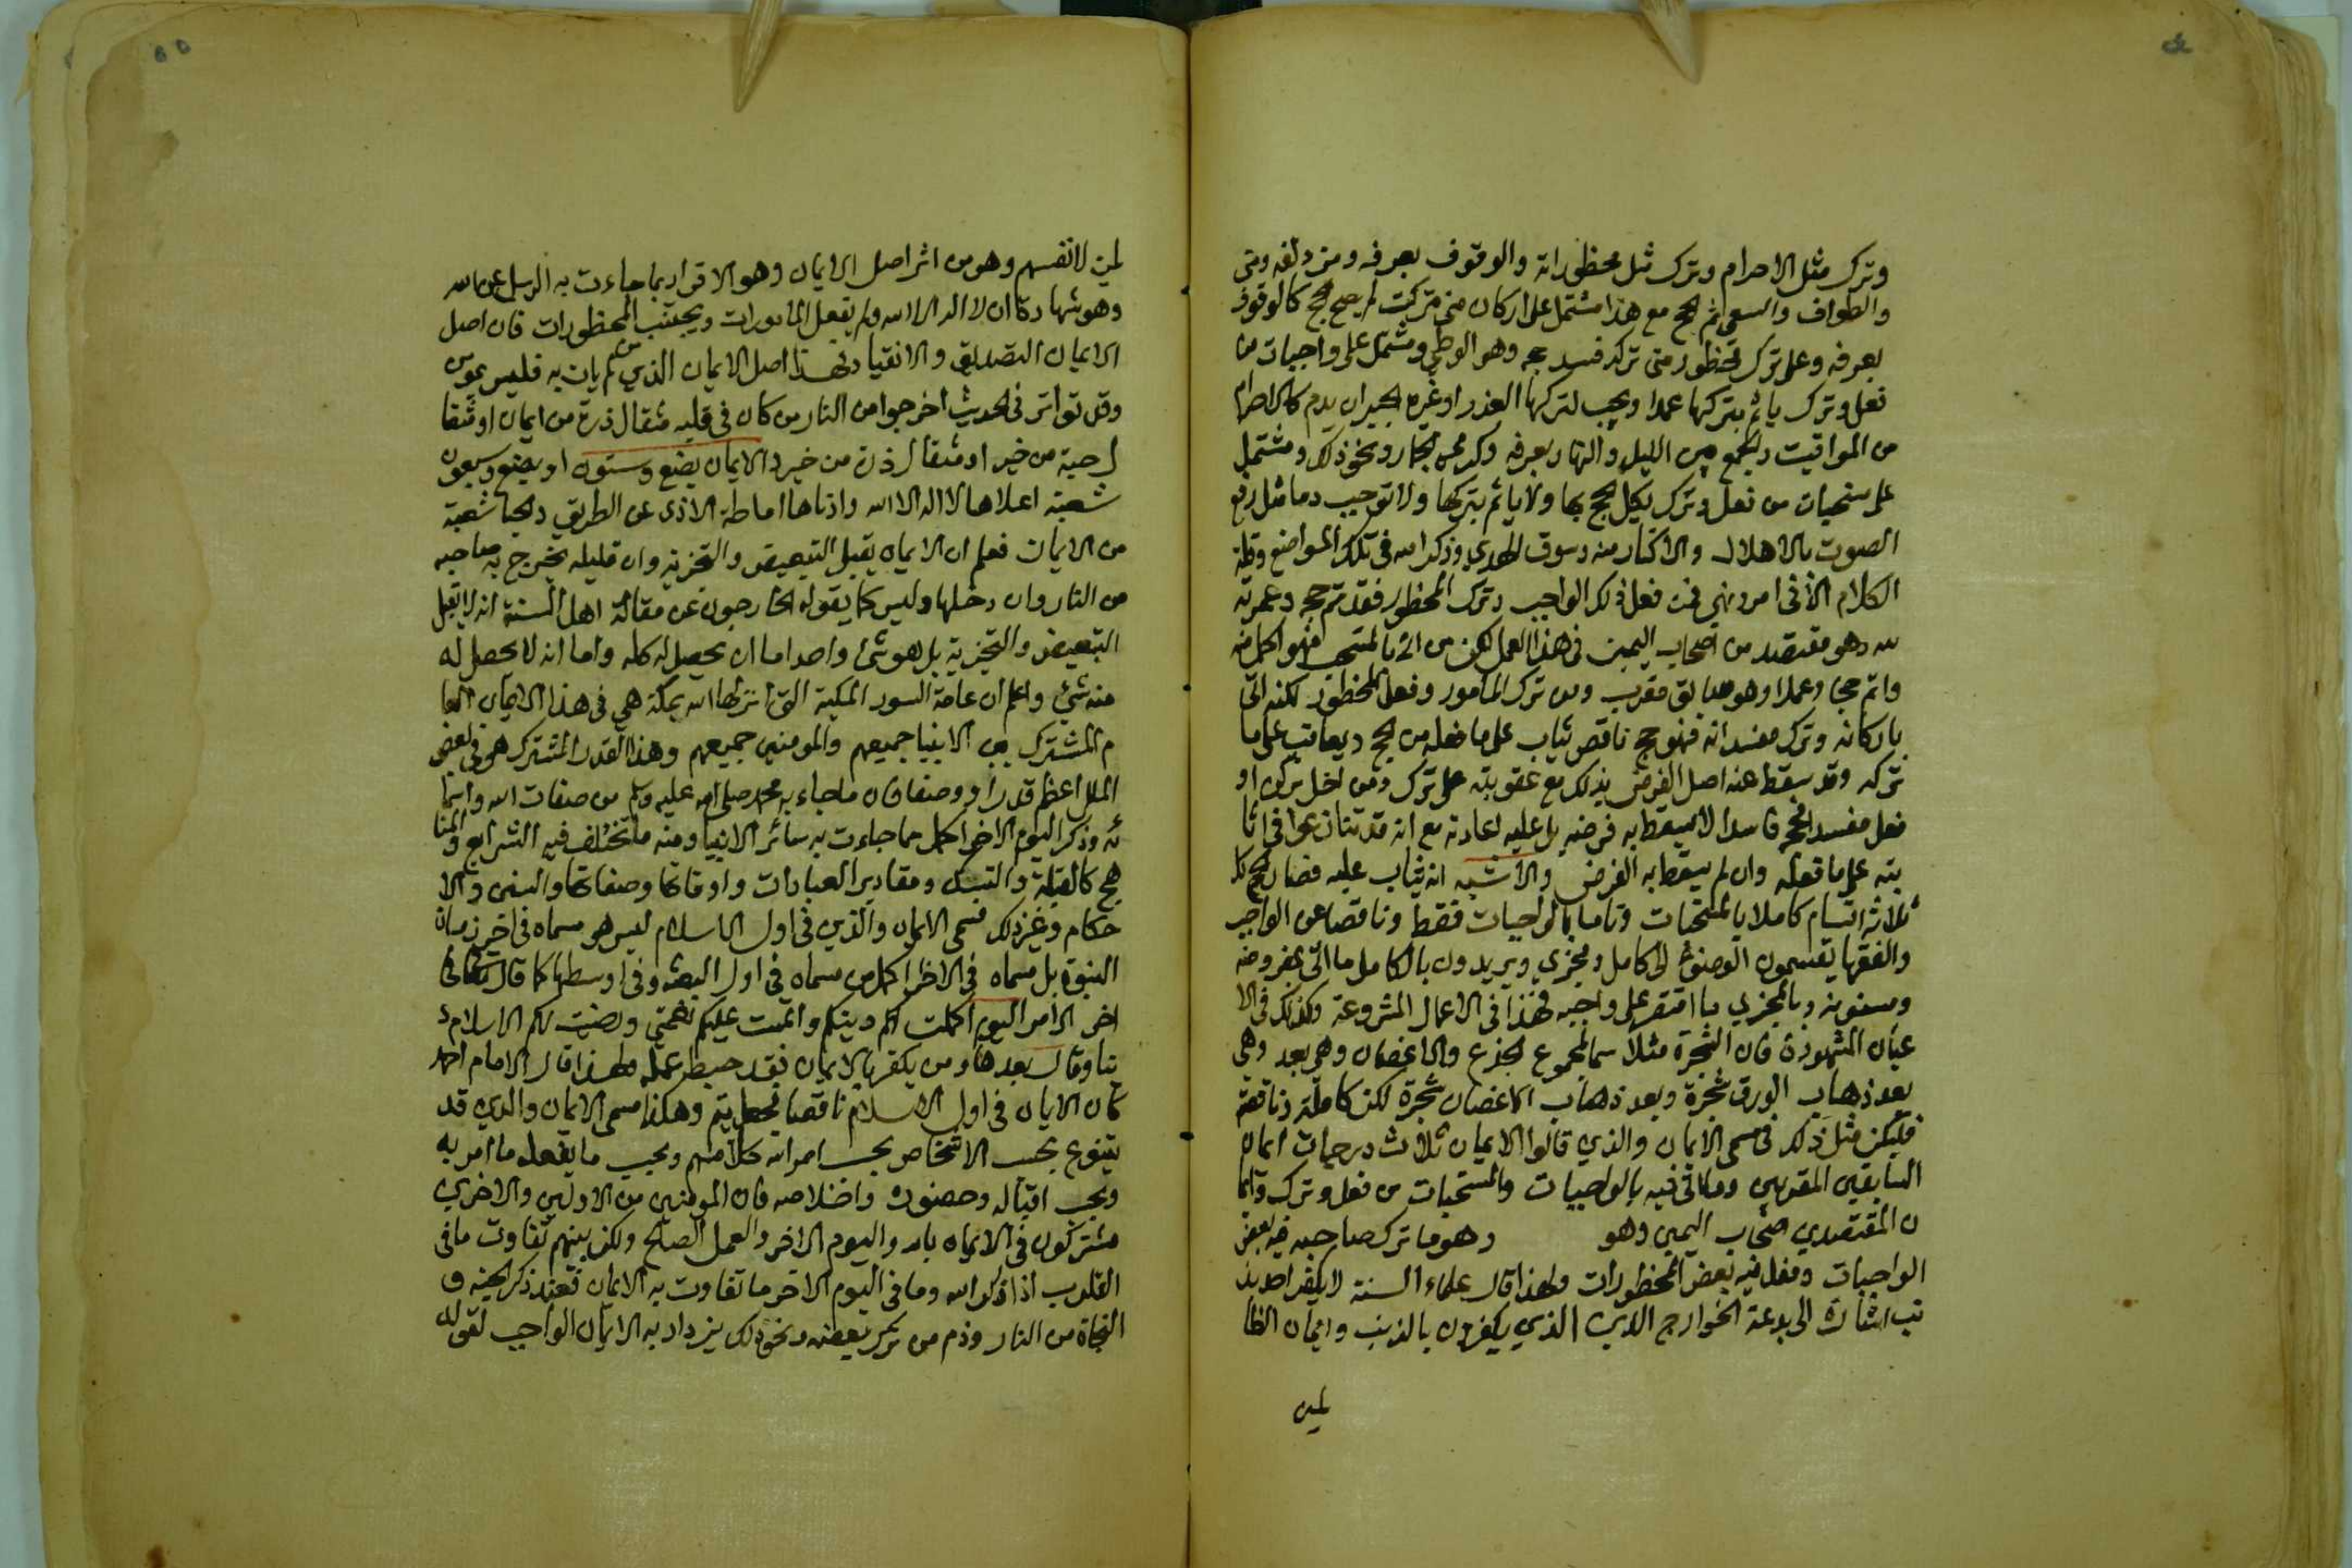 وترك مثل الاحرام وترك مثل محظوراته والوقوف بعرفه ومزدلفه ومنى
والطواف والسعي ثم الحج مع هذا مشتمل على اركان متى تركت لم يصح الحج كالوقوف
بعرفه وعلى ترك محظور متى تركه فسد حجه وهو الوطي ومشتمل على واجبات من
فعل وترك ياثم بتركها عمدا ويجب لتركها العذر او غيره الجبران بدم كالاحرام
من المواقيت والجمع بين الليل والنهار بعرفه وكرمي الجمار ونحو ذلك ومشتمل
على مستحبات من فعل وترك يكمل الحج بها ولا ياثم بتركها ولا توجب دما مثل رفع
الصوت بالاهلال والاكثار منه وسوق الهدي وذكر الله في تلك المواضع وقلة
الكلام الا في امر ونهي فمن فعل ذلك الواجب وترك المحظور فقد تم حجه وعمرته
لله وهو مقتصد من اصحاب اليمين في هذا العمل لكن من اتى بالمستحب فهو اكمل منه
واتم حجا وعملا وهو سابق مقرب ومن ترك المامور وفعل المحظور لكنه اتى
باركانه وترك مفسداته فهو حج ناقص يثاب على ما فعله من الحج ويعاقب على ما
تركه وقد سقط عنه اصل الفرض بذلك مع عقوبته على ترك ومن اخل بركن او
فعل مفسد فحجه فاسدا لا يسقط به فرضه بل عليه اعادته مع انه قد تنازعوا في اثا
بته على ما فعله وان لم يسقط به الفرض والاشبه انه يثاب عليه فصار الحج
ثلاثه اقسام كاملا بالمستحبات وتاما بالواجبات فقط وناقصا عن الواجب
والفقها يقسمون الوضوء الى كامل ومجزي ويريدون بالكامل ما اتى بمفروضه
ومسنونه وبالمجزي ما اقتصر على واجبه فهذا في الاعمال المشروعة وكذلك في الا
عيان المشهودة فان الشجرة مثلا اسم لمجموع الجذع والاغصان وهي بعد وهي
بعد ذهاب الورق شجرة وبعد ذهاب الاغصان شجرة لكن كاملة وناقصة
فليكن مثل ذلك في مسمى الايمان والذي قالوا الايمان ثلاث درجات ايمان
السابقين المقربين وما اتى فيه بالواجبات والمستحبات من فعل وترك وايما
ن المقتصدي اصحاب اليمين وهو وهو ما ترك صاحبه فيه بعض
الواجبات وفعل فيه بعض المحظورات ولهذا قال علماء السنة لا يكفر احد بذ
نب اشارة الى بدعة الخوارج الذي يكفرون بالذنب وايمان الظا
لمين
لمين لانفسهم وهو من اثر اصل الايمان وهو الاقرار بما جاءت به الرسل عن الله
وهو شهادة ان لا اله الا الله ولم يفعل المامورات ويجتنب المحظورات فان اصل
الايمان التصديق والانقياد فهذا اصل الايمان الذي من لم يات به فليس بمومن
وقد تواتر في الحديث اخرجوا من النار من كان في قلبه مثقال ذرة من ايمان او مثقا
ل حبة من خير او مثقال ذرة من خير والايمان بضع وستون او بضع وسبعون
شعبة اعلاها لا اله الا الله وادناها اماطة الاذى عن الطريق والحيا شعبة
من الايمان فعلم ان الايمان يقبل التبعيض والتجزية وان قليله يخرج به صاحبه
من النار وان دخلها وليس كما يقوله الخارجون عن مقالة اهل السنة انه لا يقبل
التبعيض والتجزية بل هو شيء واحد اما ان يحصل له كله واما انه لا يحصل له
منه شيء واعلم ان عامة السور المكية التي انزلها الله بمكة هي في هذا الايمان العا
م المشترك بين الانبيا جميعهم والمومنين جميعهم وهذا القدر المشترك هو في بعض
الملل اعظم قدرا ووصفا فان ما جاء به محمد صلى الله عليه وسلم من صفات الله واسما
ئه وذكر اليوم الاخر اكمل مما جاءت به سائر الانبيا ومنه ما تختلف فيه الشرايع والمنا
هج كالقبلة والنسك ومقادير العبادات واوقاتها وصفاتها والسنن والا
حكام وغير ذلك فمسمى الايمان والذي في اول الاسلام ليس هو مسماه في اخر زمان
النبوة بل مسماه في الاخر اكمل من مسماه في اول البعثة وفي اوسطها كما قال تعالى
اخر الامر اليوم اكملت لكم دينكم واتممت عليكم نعمتي ورضيت لكم الاسلام د
ينا وقال بعدها ومن يكفر بالايمان فقد حبط عمله ولهذا قال الامام احمد
كان الايمان في اول الاسلام ناقصا فجعل يتم وهكذا مسمى الايمان والدين قد
يتنوع بحسب الاشخاص بحسب امر الله كلا منهم وبحسب ما يفعله ما امر به
وبحسب اقباله وحضوره واخلاصه فان المومنين من الاولين والاخرين
مشتركون في الايمان بالله واليوم الاخر والعمل الصالح ولكن بينهم تفاوت ما في
القلوب اذا ذكر الله وما في اليوم الاخر ما تفاوت به الايمان فعند ذكر الجنه و
النجاة من النار وذم من ترك بعضه ونحو ذلك يزداد به الايمان الواجب لقوله